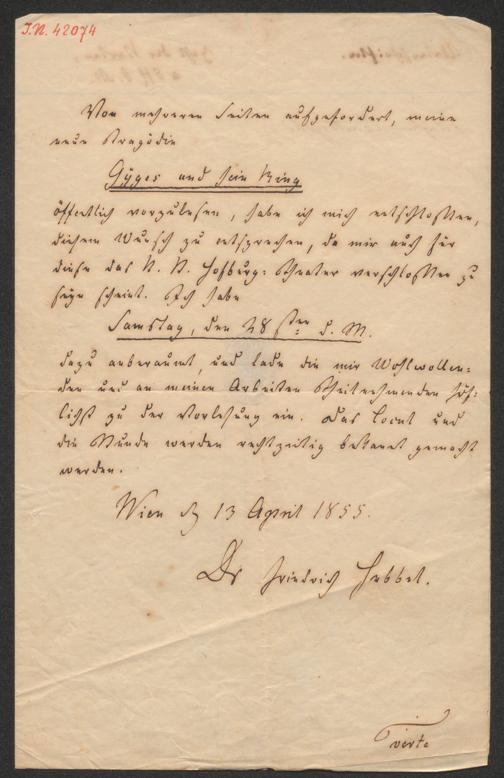 I.N. 42074
Von mehreren Seiten aufgefordert, meine
neue Tragödie
Gyges und sein Ring
öffentlich vorzulesen, habe ich mich entschlossen,
diesem Wunsch zu entsprechen, da mir auch für
diese das K. K. Hofburg-Theater verschlossen zu
seyn scheint. Ich habe
Samstag, den 28sten d. M.
dazu anberaumt, und lade die mir Wohlwollen-
den und an meinen Arbeiten Theilnehmenden höf-
lichst zu der Vorlesung ein. Das Local und
die Stunde werden rechtzeitig bekannt gemacht
werden.
Wien d 13 April 1855.
Dr Friedrich Hebbel.
verte